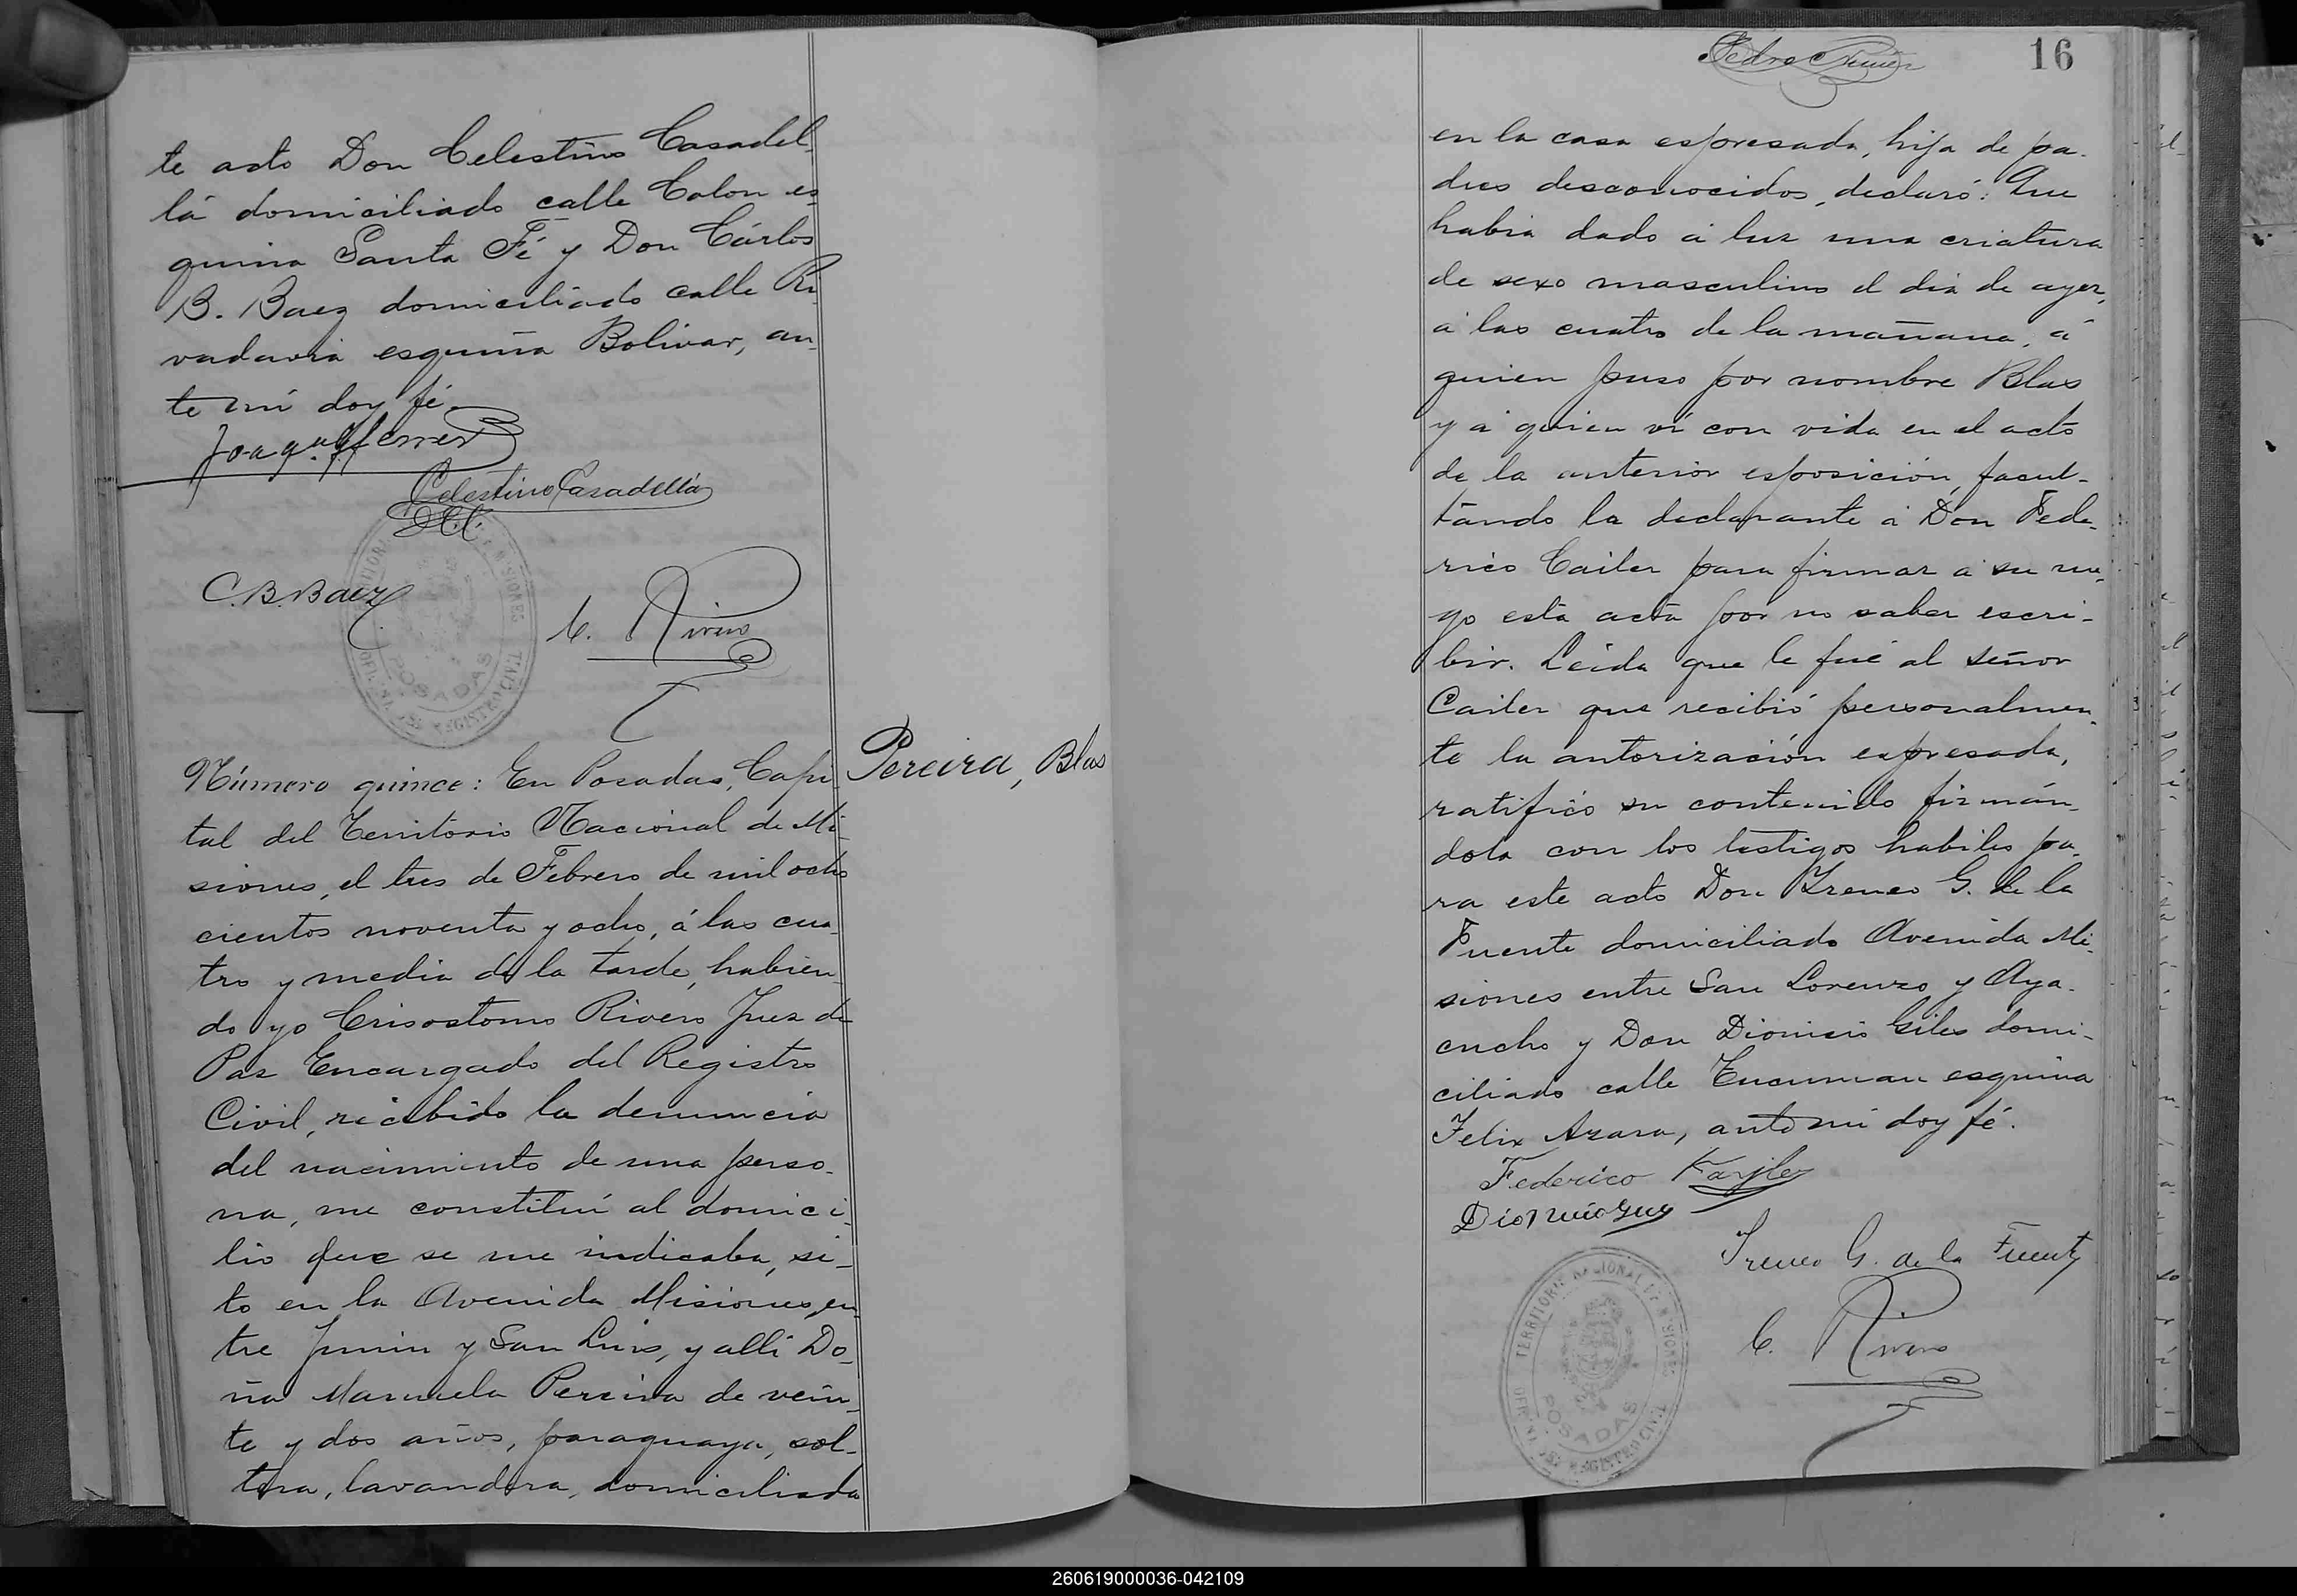 te acto Don Celestino Casadel-
lá domiciliado calle Colon es-
quina Santa Fé y Don Cárlos
B. Baez domiciliado calle Ri-
vadavia esquina Bolivar, an-
te mí doy fé.
Joaqn. Ferrer
Celestino Casadellá
C.B. Baez
C. Rivero
POSADAS
Número quince: En Posadas, Capi-
tal del Territorio Nacional de Mi-
siones, el tres de Febrero de mil ocho
cientos noventa y ocho, á las cua-
tro y media de la tarde, habien-
do yo Crisostomo Rivero Juez de
Paz Encargado del Registro
Civil, recibido la denuncia
del nacimiento de una perso-
na, me constituí al domici-
lio que se me indicaba, si-
to en la Avenida Misiones, en-
tre Junin y San Luis, y allí Do-
ña Manuela Pereira de vein-
te y dos años, paraguaya, sol-
tera, lavandera, domiciliada
Pereira, Blas
16
en la casa espresada, hija de pa-
dres desconocidos, declaró: Que
habia dado á luz una criatura
de sexo masculino el dia de ayer,
á las cuatro de la mañana, á
quien puso por nombre Blas
y á quien ví con vida en el acto
de la anterior esposición, facul-
tando la declarante á Don Fede-
rico Cailer para firmar á su rue-
go esta acta por no saber escri-
bir. Leida que le fué al señor
Cailer que recibió personalmen-
te la autorización espresada,
ratificó su contenido firmán-
dola con los testigos habiles pa-
ra este acto Don Ireneo G. de la
Fuente domiciliado Avenida Mi-
siones entre San Lorenzo y Aya-
cucho y Don Dionisio Giles domi-
ciliado calle Tucuman esquina
Felix Azara, ante mí doy fé.
Federico Kayler
Ireneo G. de la Fuente
C. Rivero
TERRITORIO NACIONAL DE MISIONES
POSADAS
260619000036-042109